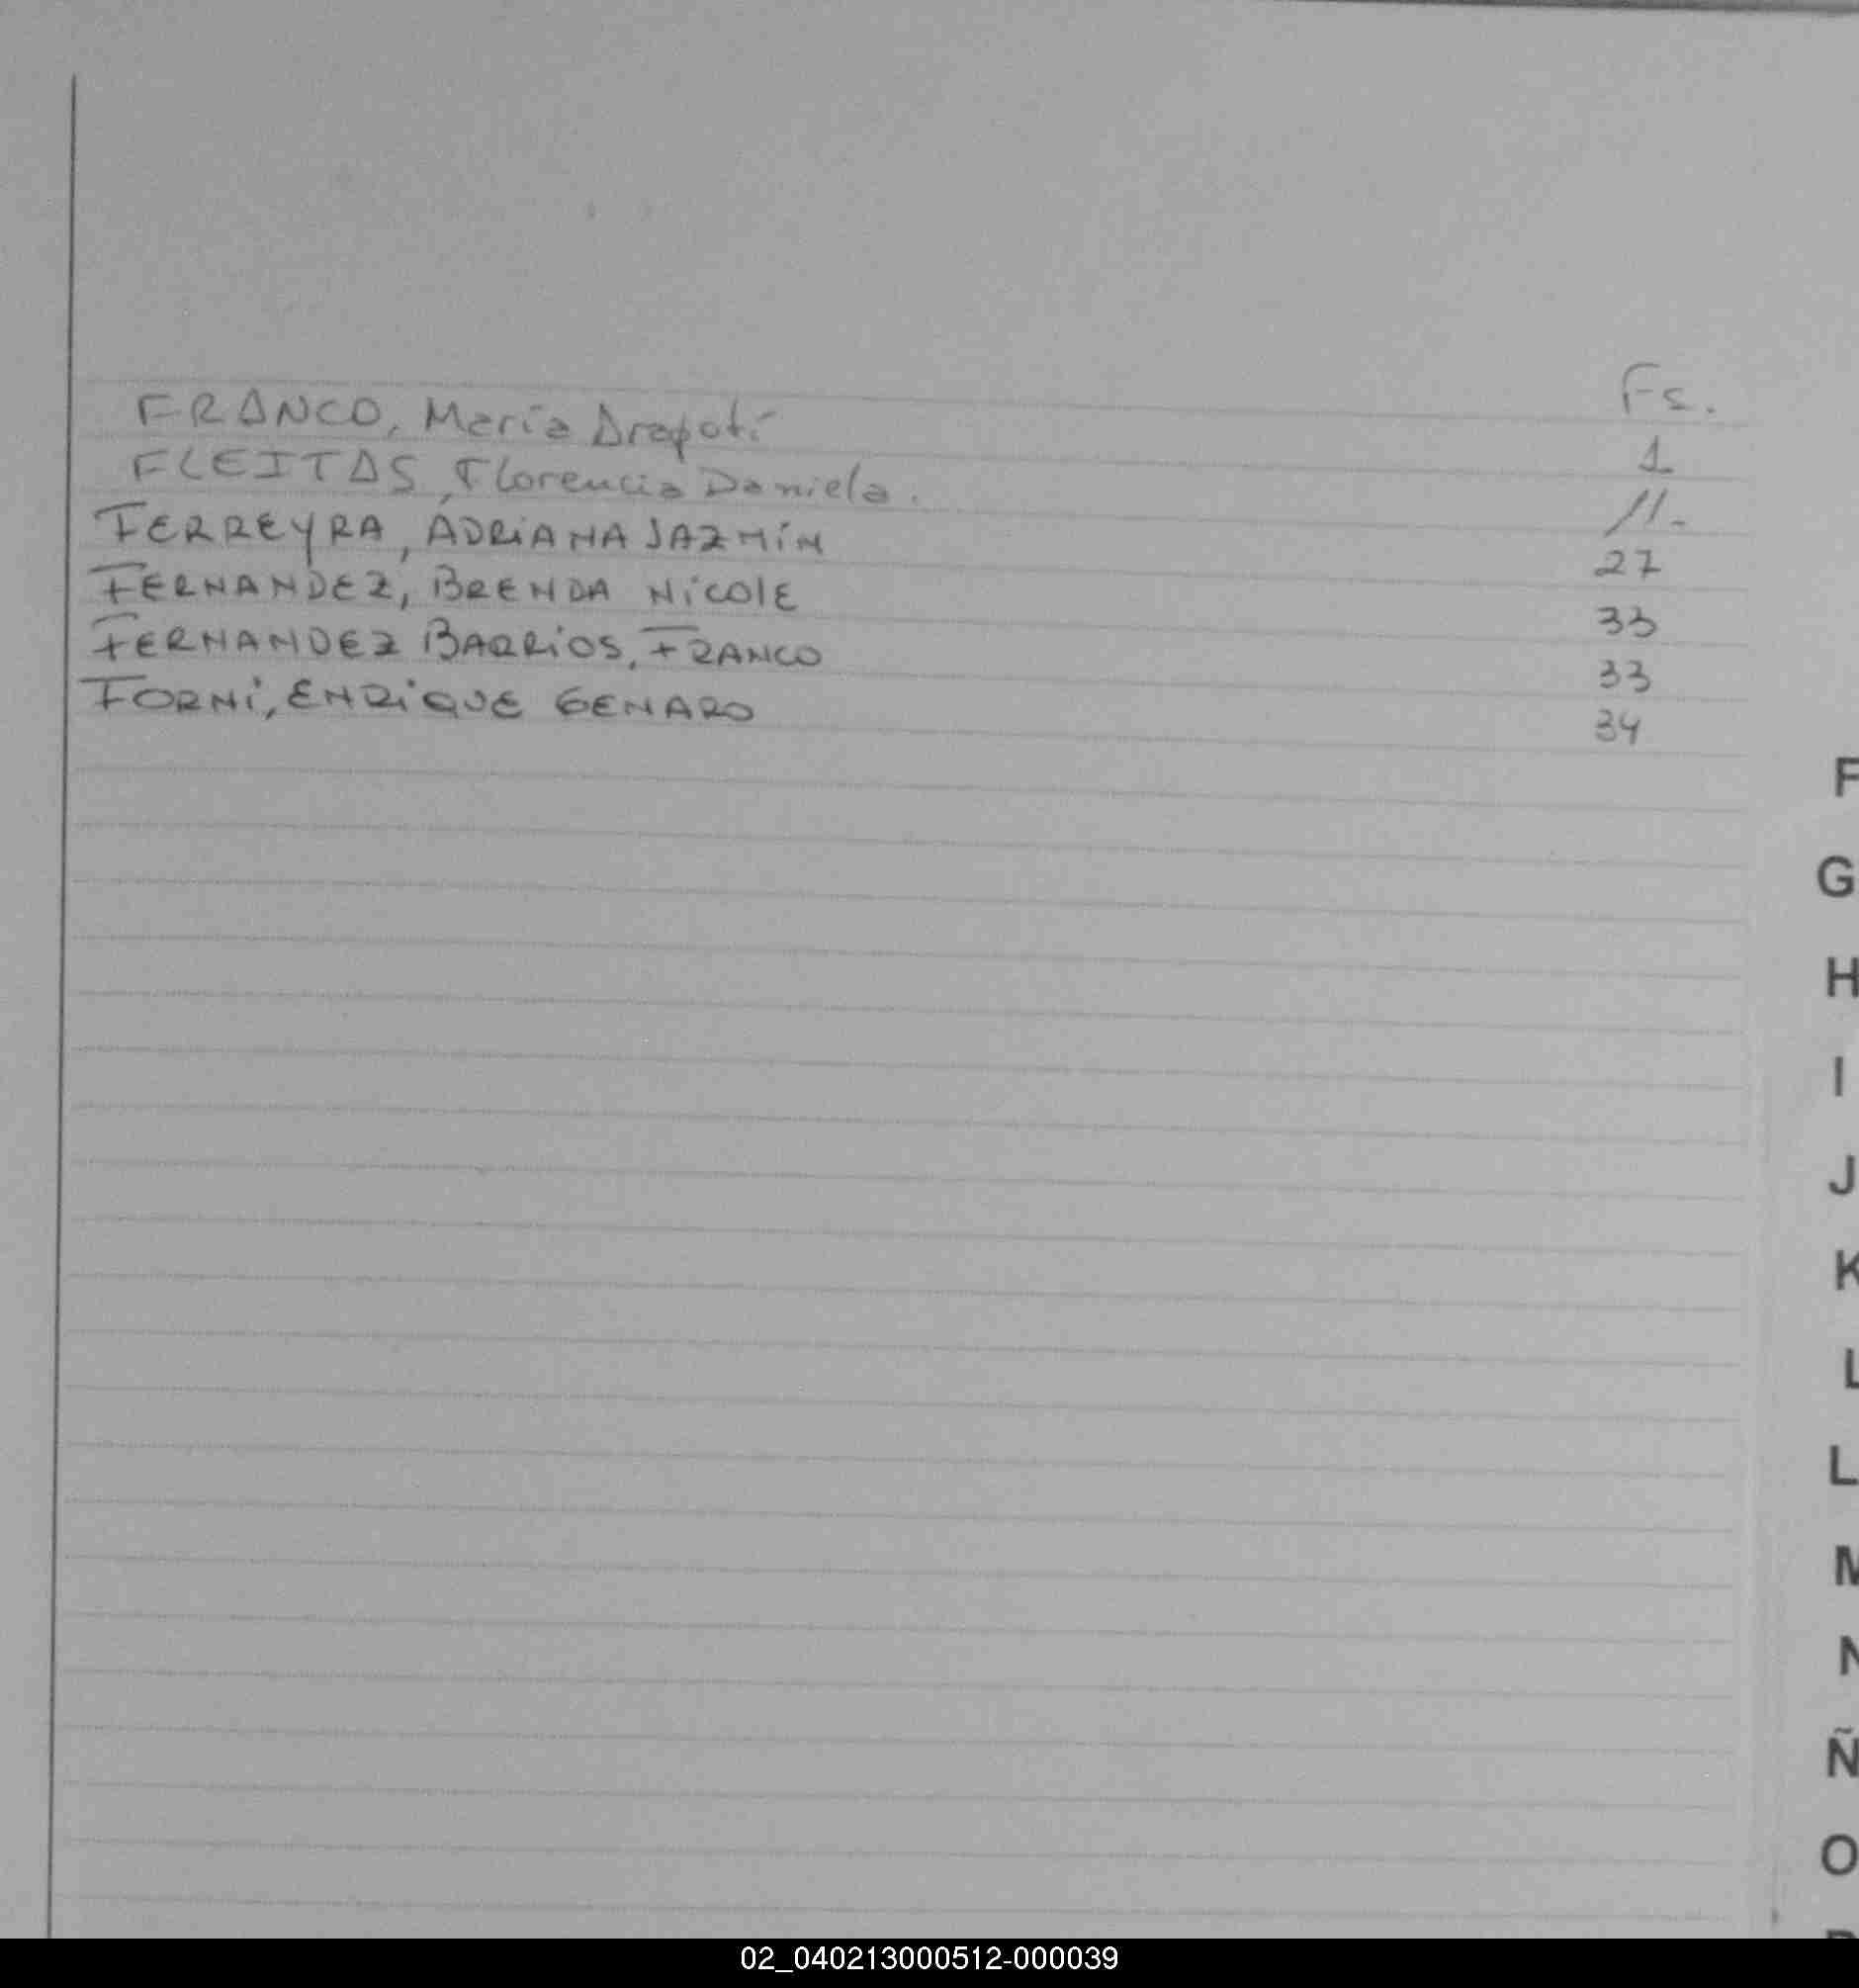 Fs.
FRANCO, María Arapotí 1
FLEITAS, Florencia Daniela. 11-
FERREYRA, ADRIANA JAZMÍN 27
FERNANDEZ, BRENDA NICOLE 33
FERNANDEZ BARRIOS, FRANCO 33
FORNI, ENRIQUE GENARO 34
F
G
H
I
J
K
L
L
M
N
Ñ
O
02_040213000512-000039